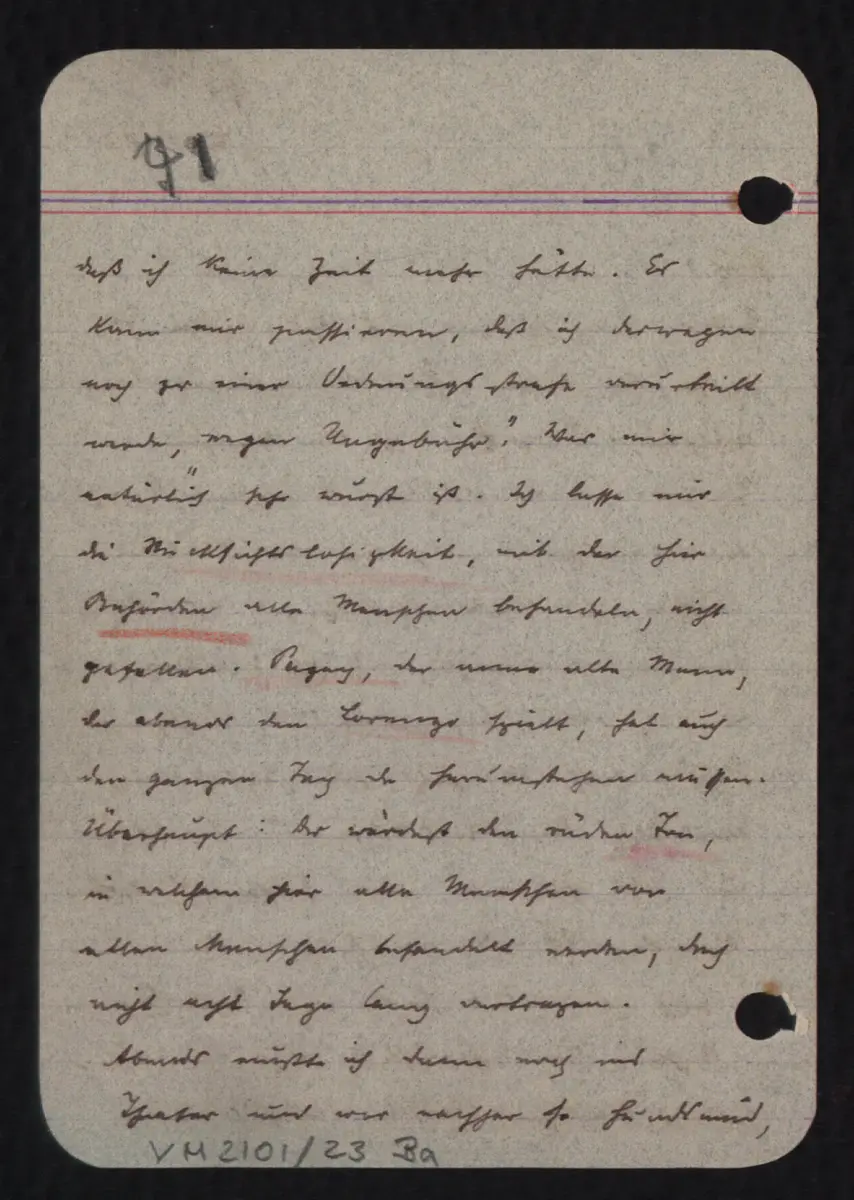 91
daß ich keine Zeit mehr hätte. Es
kann mir passieren, daß ich deswegen
noch zu einer Ordnungsstrafe verurteilt
werde, „wegen Ungebühr". Was mir
natürlich sehr wurst ist. Ich lasse mir
die Rücksichtslosigkeit, mit der hier
Behörden alle Menschen behandeln, nicht
gefallen. Pagay, der arme alte Mann,
der abends den Lorenzo spielt, hat auch
den ganzen Tag da herumstehen müssen.
Überhaupt: Du würdest den rüden Ton,
in welchem hier alle Menschen von
allen Menschen behandelt werden, doch
nicht acht Tage lang vertragen.
Abends mußte ich dann noch ins
Theater und war nachher so hundsmüd,
VM 2101/23 Ba